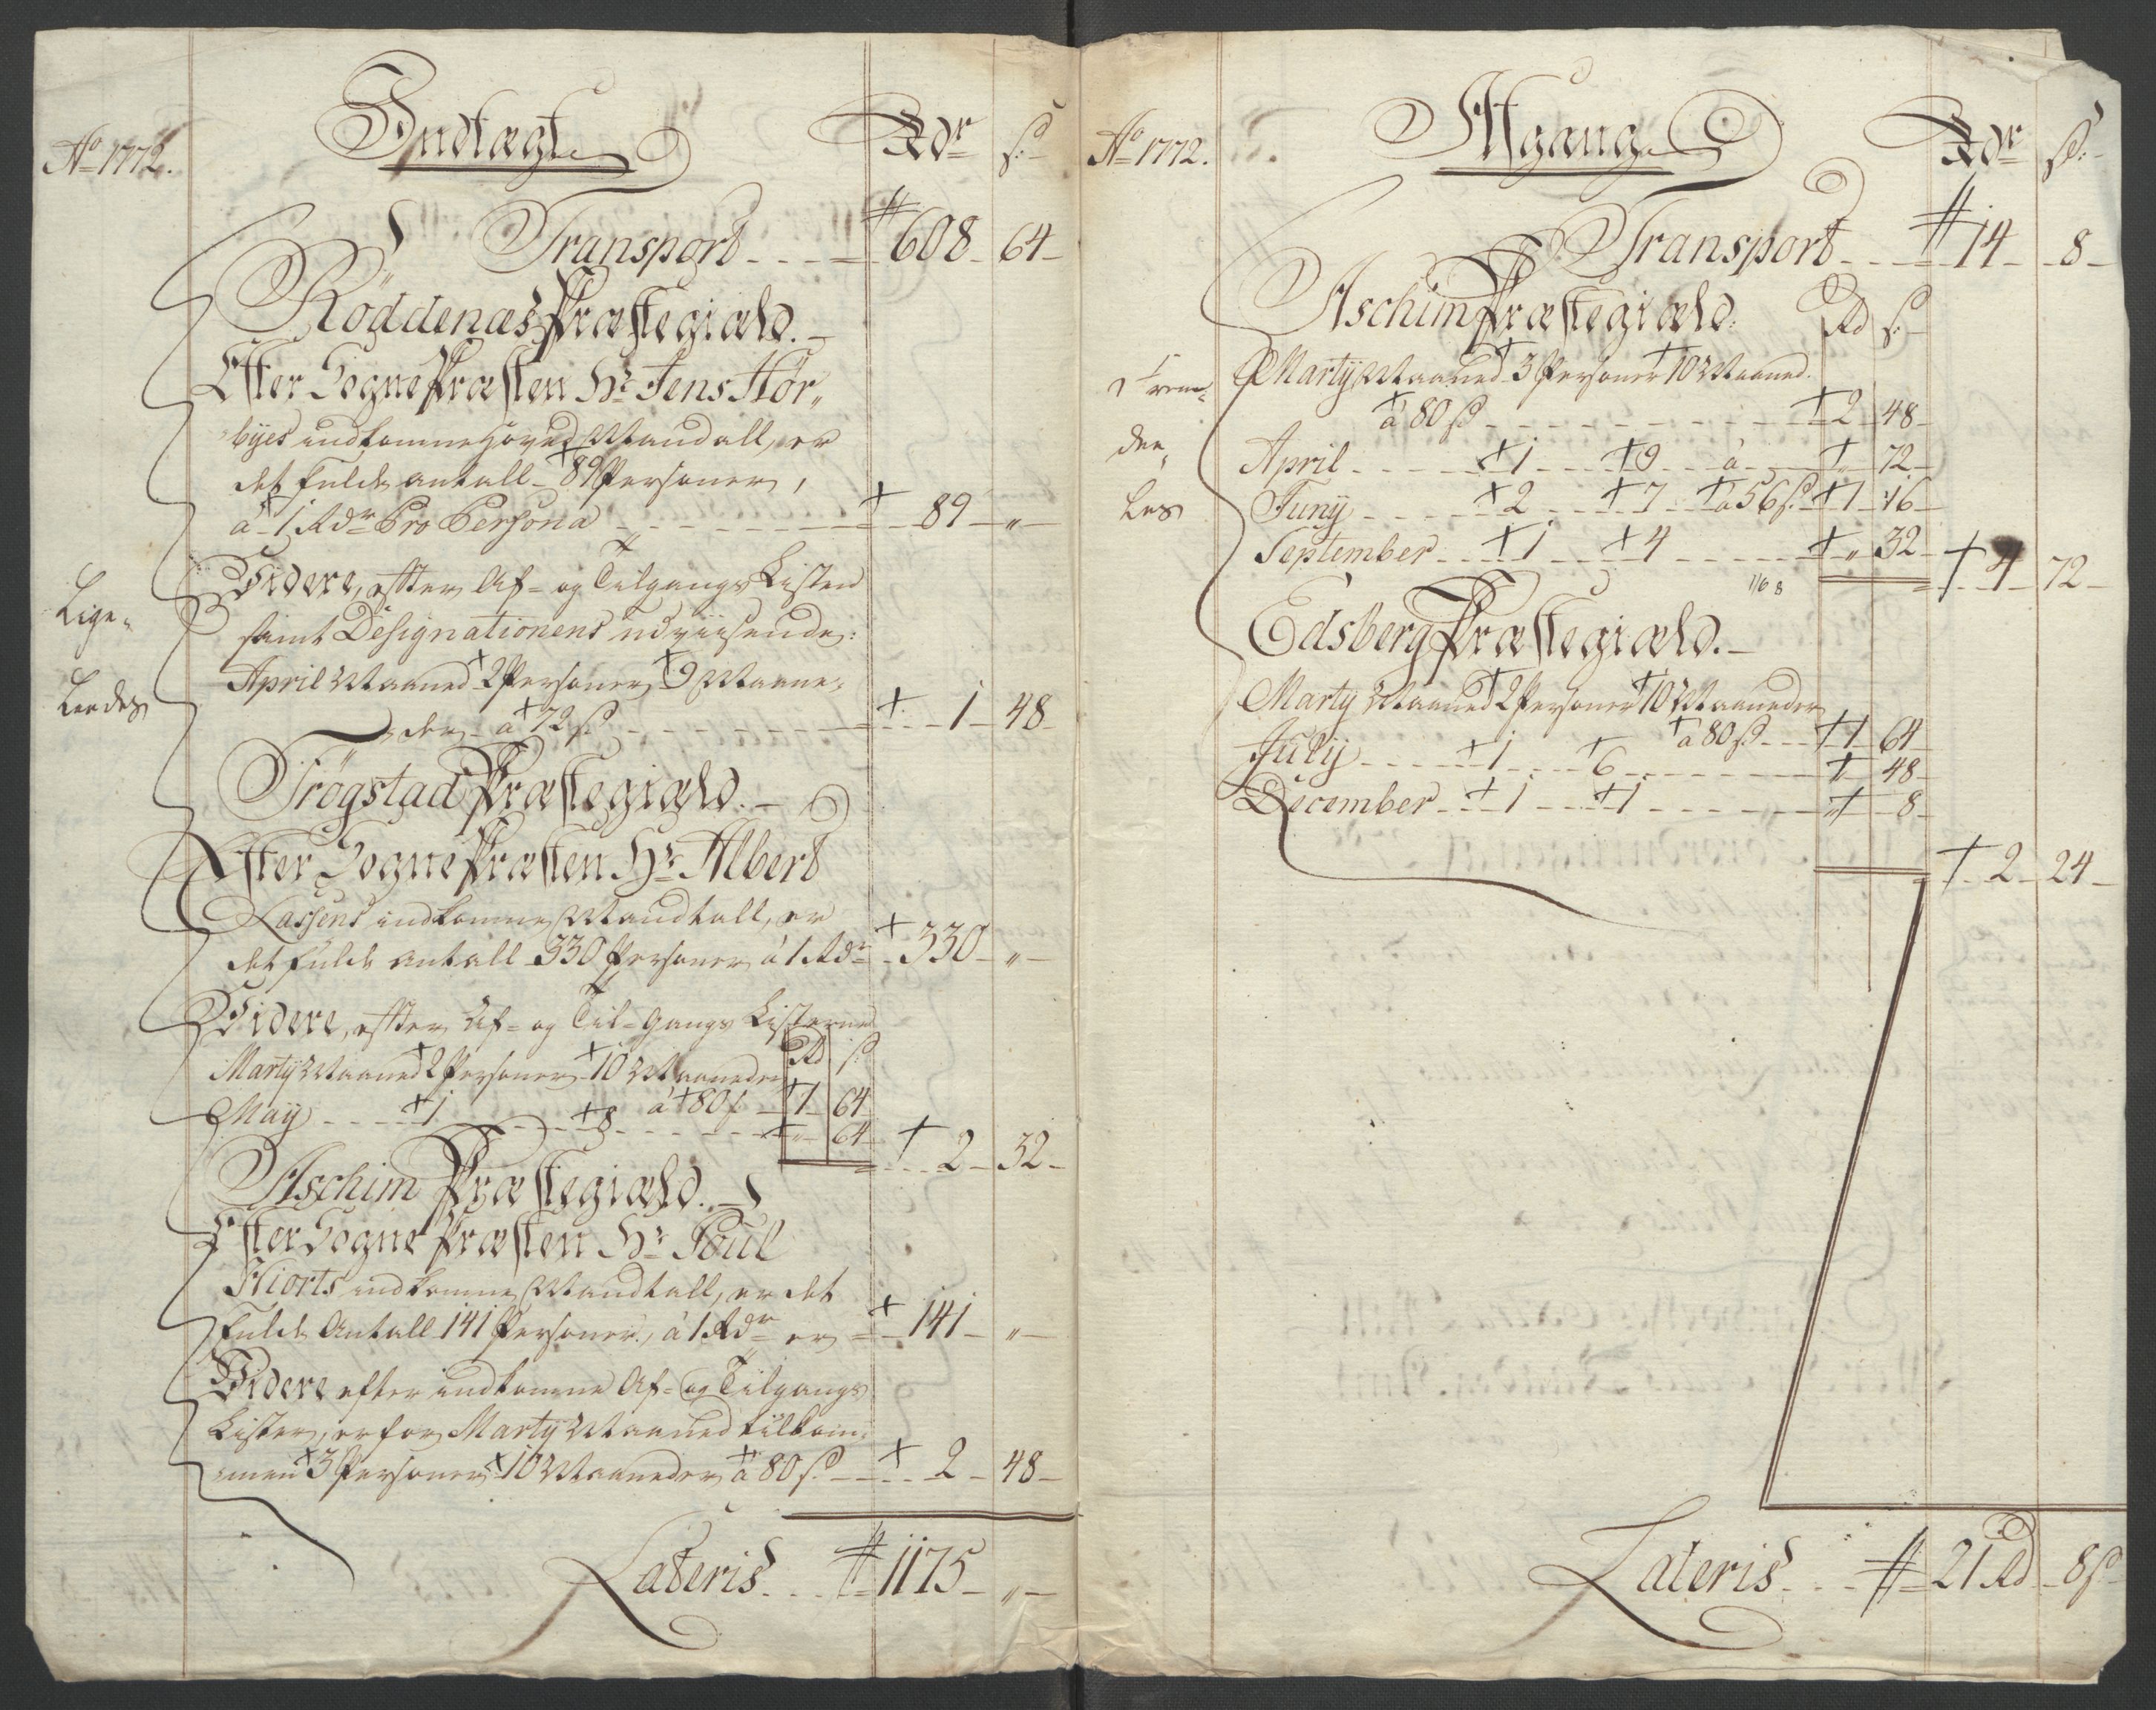 Ao 1772.
Indtægt
Rdr s:
Transport - - - # 608 - 64 -
Röddenæs Præstegiæld. -
Efter Sogne Præsten Hr. Jens Hör„
byes indkomne Hoved Mandtall, er
det fulde antall - 89 Personer,
à 1 Rdr Pro Persona - - - 89 - „ -
Videre, efter Af- og Tilgangs Listen
samt Designationens udviisende:
Lige„
April Maaned 2 Personer 9 Maane„
Leedes
der à 72 s - - - 1 - 48 -
Trögstad Præstegiæld. -
Efter Sogne Præsten Hr. Albert
Lassens indkomne Mandtall, er
det fulde antall 330 Personer à 1 Rdr - 330 - „ -
Videre, efter Af- og Til-Gangs Listerne
Rd s:
Marty Maaned 2 Personer 10 Maaneder
à 80 s - 1 64
May - - - 1 - - - 8 - - - „ 64 - 2 - 32 -
Aschim Præstegiæld. -
Efter Sogne Præsten Hr. Poul
Hiorts indkomne Mandtall, er det
fulde Antall 141 Personer, à 1 Rdr er - 141 - „ -
Videre efter indkomne Af- og Tilgangs
Lister, er for Marty Maaned tilkom„
men 3 Personer 10 Maaneder à 80 s. - - 2 - 48 -
Lateris - - - # 1175 - „ -
Ao 1772.
Afgang
Rdr s:
Transport - - - # 14 - 8 -
Aschim Præstegiæld. Rd s:
Marty Maaned 3 Personer 10 Maaned.
Frem„
à 80 s - - - 2 48 -
den„
April - - - 1 - - - 9 - - à - - „ 72 -
Les
Juny - - - 2 - - - 7 - à 56 s. 1 - 16 -
September - - 1 - - 4 - - - „ 32 - 4 - 72 -
116 8
Edsberg Præstegiæld. -
Marty Maaned 2 Personer 10 Maaneder
à 80 s - - 1 64 -
July - - - 1 - - - 6 - - - „ 48 -
December - - 1 - - 1 - - - „ 8 -
2 - 24 -
Lateris - - - # 21 Rd - 8 s